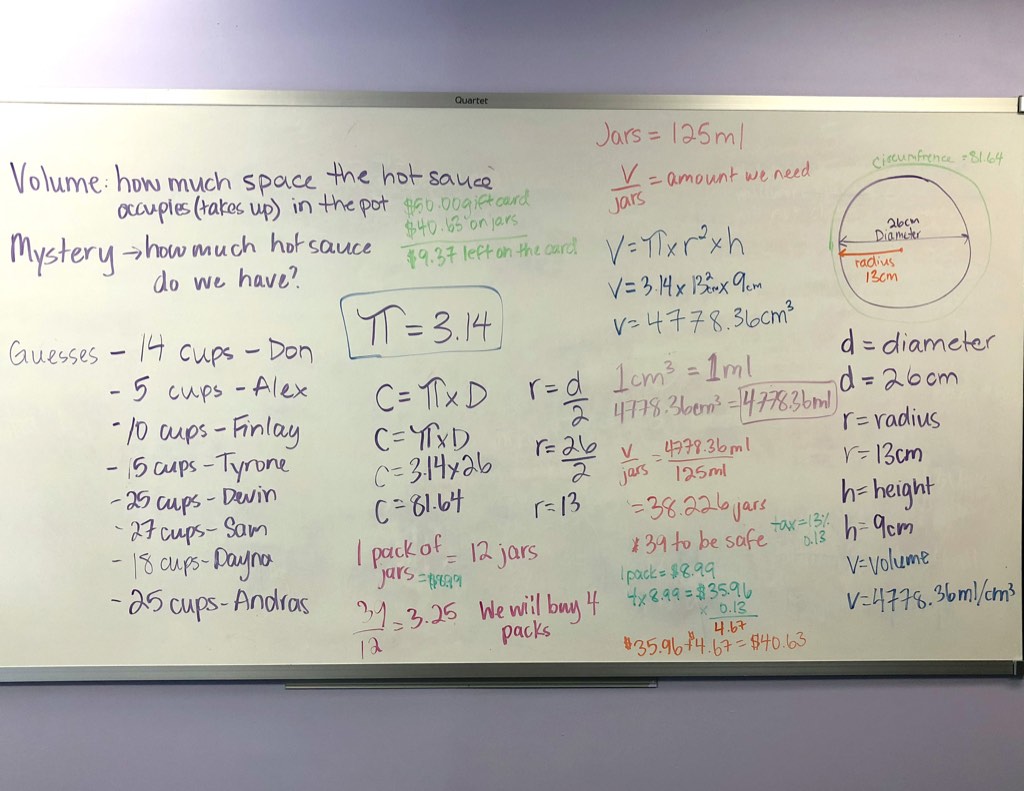 Quartet
Volume: how much space the hot sauce
occupies (takes up) in the pot
Mystery → how much hot sauce
do we have?
$50.00 gift card
$40.63 on jars
$9.37 left on the card
Guesses - 14 cups - Don
- 5 cups - Alex
- 10 cups - Finlay
- 15 cups - Tyrone
- 25 cups - Devin
- 27 cups - Sam
- 18 cups - Dayna
- 25 cups - Andras
π = 3.14
C = π x D
C = π x D
C = 3.14 x 26
C = 81.64
r = d/2
r = 26/2
r = 13
1 pack of jars = 12 jars
= $8.99
39/12 = 3.25 We will buy 4
packs
Jars = 125ml
V/jars = amount we need
V = π x r² x h
V = 3.14 x 13²cm x 9cm
V = 4778.36cm³
1cm³ = 1ml
4778.36cm³ = 4778.36ml
V/jars = 4778.36ml/125ml
= 38.226 jars
* 39 to be safe
tax = 13%
0.13
1 pack = $8.99
4 x 8.99 = $35.96
x 0.13
4.67
$35.96 + $4.67 = $40.63
Circumfrence = 81.64
26cm
Diameter
radius
13cm
d = diameter
d = 26cm
r = radius
r = 13cm
h = height
h = 9cm
V = volume
V = 4778.36ml/cm³